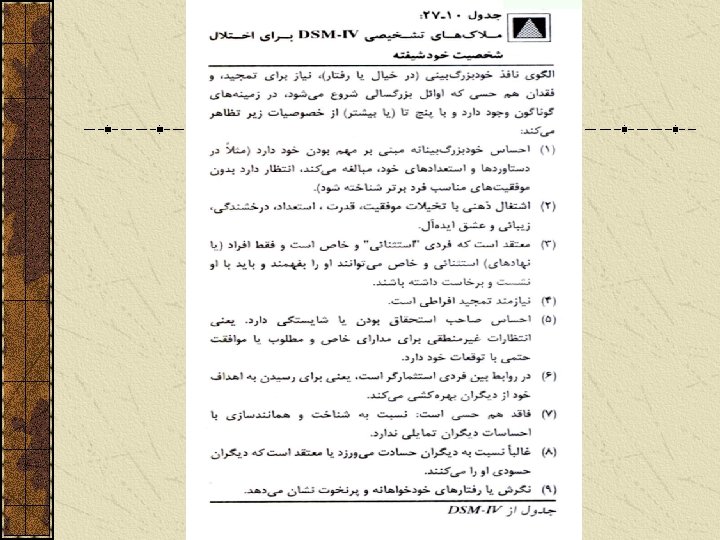 جدول ۱۰-۲۷:
ملاک‌های تشخیصی DSM-IV برای اختلال
شخصیت خودشیفته
الگوی نافذ خودبزرگ‌بینی (در خیال یا رفتار)، نیاز برای تمجید، و
فقدان هم حسی که اوائل بزرگسالی شروع می‌شود، در زمینه‌های
گوناگون وجود دارد و با پنج تا (یا بیشتر) از خصوصیات زیر تظاهر
می‌کند:
(۱) احساس خودبزرگ‌بینانه مبنی بر مهم بودن خود دارد (مثلاً در
دستاوردها و استعدادهای خود، مبالغه می‌کند، انتظار دارد بدون
موفقیت‌های مناسب فرد برتر شناخته شود).
(۲) اشتغال ذهنی با تخیلات موفقیت، قدرت ، استعداد، درخشندگی،
زیبائی و عشق ایده‌آل.
(۳) معتقد است که فردی "استثنائی" و خاص است و فقط افراد (یا
نهادهای) استثنائی و خاص می‌توانند او را بفهمند و باید با او
نشست و برخاست داشته باشند.
(۴) نیازمند تمجید افراطی است.
(۵) احساس صاحب استحقاق بودن یا شایستگی دارد. یعنی
انتظارات غیرمنطقی برای مدارای خاص و مطلوب یا موافقت
حتمی با توقعات خود دارد.
(۶) در روابط بین فردی استثمارگر است، یعنی برای رسیدن به اهداف
خود از دیگران بهره‌کشی می‌کند.
(۷) فاقد هم حسی است: نسبت به شناخت و همانندسازی با
احساسات دیگران تمایلی ندارد.
(۸) غالباً نسبت به دیگران حسادت می‌ورزد یا معتقد است که دیگران
حسودی او را می‌کنند.
(۹) نگرش یا رفتارهای خودخواهانه و پرنخوت نشان می‌دهد.
جدول از DSM-IV